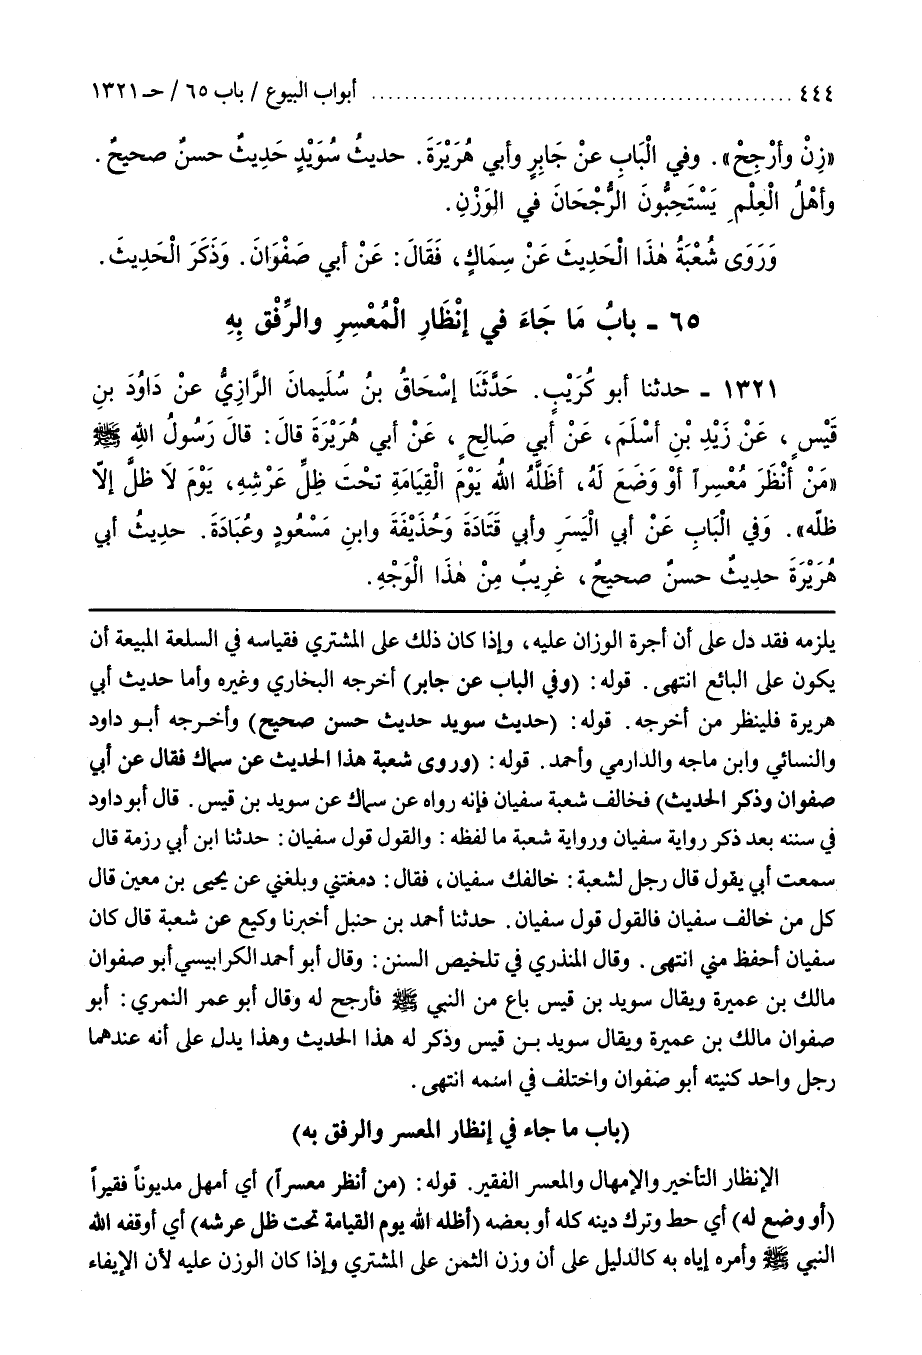 ٤٤٤ ........................................................ أبواب البيوع / باب ٦٥ / حـ ١٣٢١
«زِنْ وأرْجِحْ» . وفي الْبَابِ عنْ جَابِرٍ وأبي هُرَيْرَةَ . حديثُ سُوَيْدٍ حَدِيثٌ حسنٌ صحيحٌ .
وأهْلُ الْعِلْمِ يَسْتَحِبُّونَ الرُّجْحَانَ في الوَزْنِ .
وَرَوَى شُعْبَةُ هٰذا الْحَدِيثَ عَنْ سِمَاكٍ ، فَقَالَ : عَنْ أبي صَفْوَانَ . وَذَكَرَ الْحَدِيثَ .
٦٥ ـ بابُ مَا جَاءَ في إنْظَارِ الْمُعْسِرِ والرِّفْقِ بِهِ
١٣٢١ ـ حدثنا أبو كُرَيْبٍ . حَدَّثَنَا إسْحَاقُ بنُ سُلَيمانَ الرَّازِيُّ عنْ دَاوُدَ بنِ
قَيْسٍ ، عَنْ زَيْدِ بْنِ أسْلَمَ ، عَنْ أبي صَالِحٍ ، عَنْ أبي هُرَيْرَةَ قالَ : قالَ رَسُولُ اللهِ ﷺ
«مَنْ أنْظَرَ مُعْسِراً أوْ وَضَعَ لَهُ ، أظَلَّهُ اللهُ يَوْمَ الْقِيَامَةِ تحْتَ ظِلِّ عَرْشِهِ ، يَوْمَ لَا ظلَّ إلاَّ
ظلّه» . وَفي الْبَابِ عَنْ أبي الْيَسَرِ وأبي قَتَادَةَ وَحُذَيْفَةَ وابنِ مَسْعُودٍ وعُبَادَةَ . حديثُ أبي
هُرَيْرَةَ حديثٌ حسنٌ صحيحٌ ، غريبٌ مِنْ هٰذَا الْوَجْهِ .
يلزمه فقد دل على أن أجرة الوزان عليه ، وإذا كان ذلك على المشتري فقياسه في السلعة المبيعة أن
يكون على البائع انتهى . قوله : (وفي الباب عن جابر) أخرجه البخاري وغيره وأما حديث أبي
هريرة فلينظر من أخرجه . قوله : (حديث سويد حديث حسن صحيح) وأخرجه أبو داود
والنسائي وابن ماجه والدارمي وأحمد . قوله : (وروى شعبة هذا الحديث عن سماك فقال عن أبي
صفوان وذكر الحديث) فخالف شعبة سفيان فإنه رواه عن سماك عن سويد بن قيس . قال أبو داود
في سننه بعد ذكر رواية سفيان ورواية شعبة ما لفظه : والقول قول سفيان : حدثنا ابن أبي رزمة قال
سمعت أبي يقول قال رجل لشعبة : خالفك سفيان ، فقال : دمغتني وبلغني عن يحيى بن معين قال
كل من خالف سفيان فالقول قول سفيان . حدثنا أحمد بن حنبل أخبرنا وكيع عن شعبة قال كان
سفيان أحفظ مني انتهى . وقال المنذري في تلخيص السنن : وقال أبو أحمد الكرابيسي أبو صفوان
مالك بن عميرة ويقال سويد بن قيس باع من النبي ﷺ فأرجح له وقال أبو عمر النمري : أبو
صفوان مالك بن عميرة ويقال سويد بن قيس وذكر له هذا الحديث وهذا يدل على أنه عندهما
رجل واحد كنيته أبو صفوان واختلف في اسمه انتهى .
(باب ما جاء في إنظار المعسر والرفق به)
الإنظار التأخير والإمهال والمعسر الفقير . قوله : (من أنظر معسراً) أي أمهل مديوناً فقيراً
(أو وضع له) أي حط وترك دينه كله أو بعضه (أظله الله يوم القيامة تحت ظل عرشه) أي أوقفه الله
النبي ﷺ وأمره إياه به كالدليل على أن وزن الثمن على المشتري وإذا كان الوزن عليه لأن الإيفاء